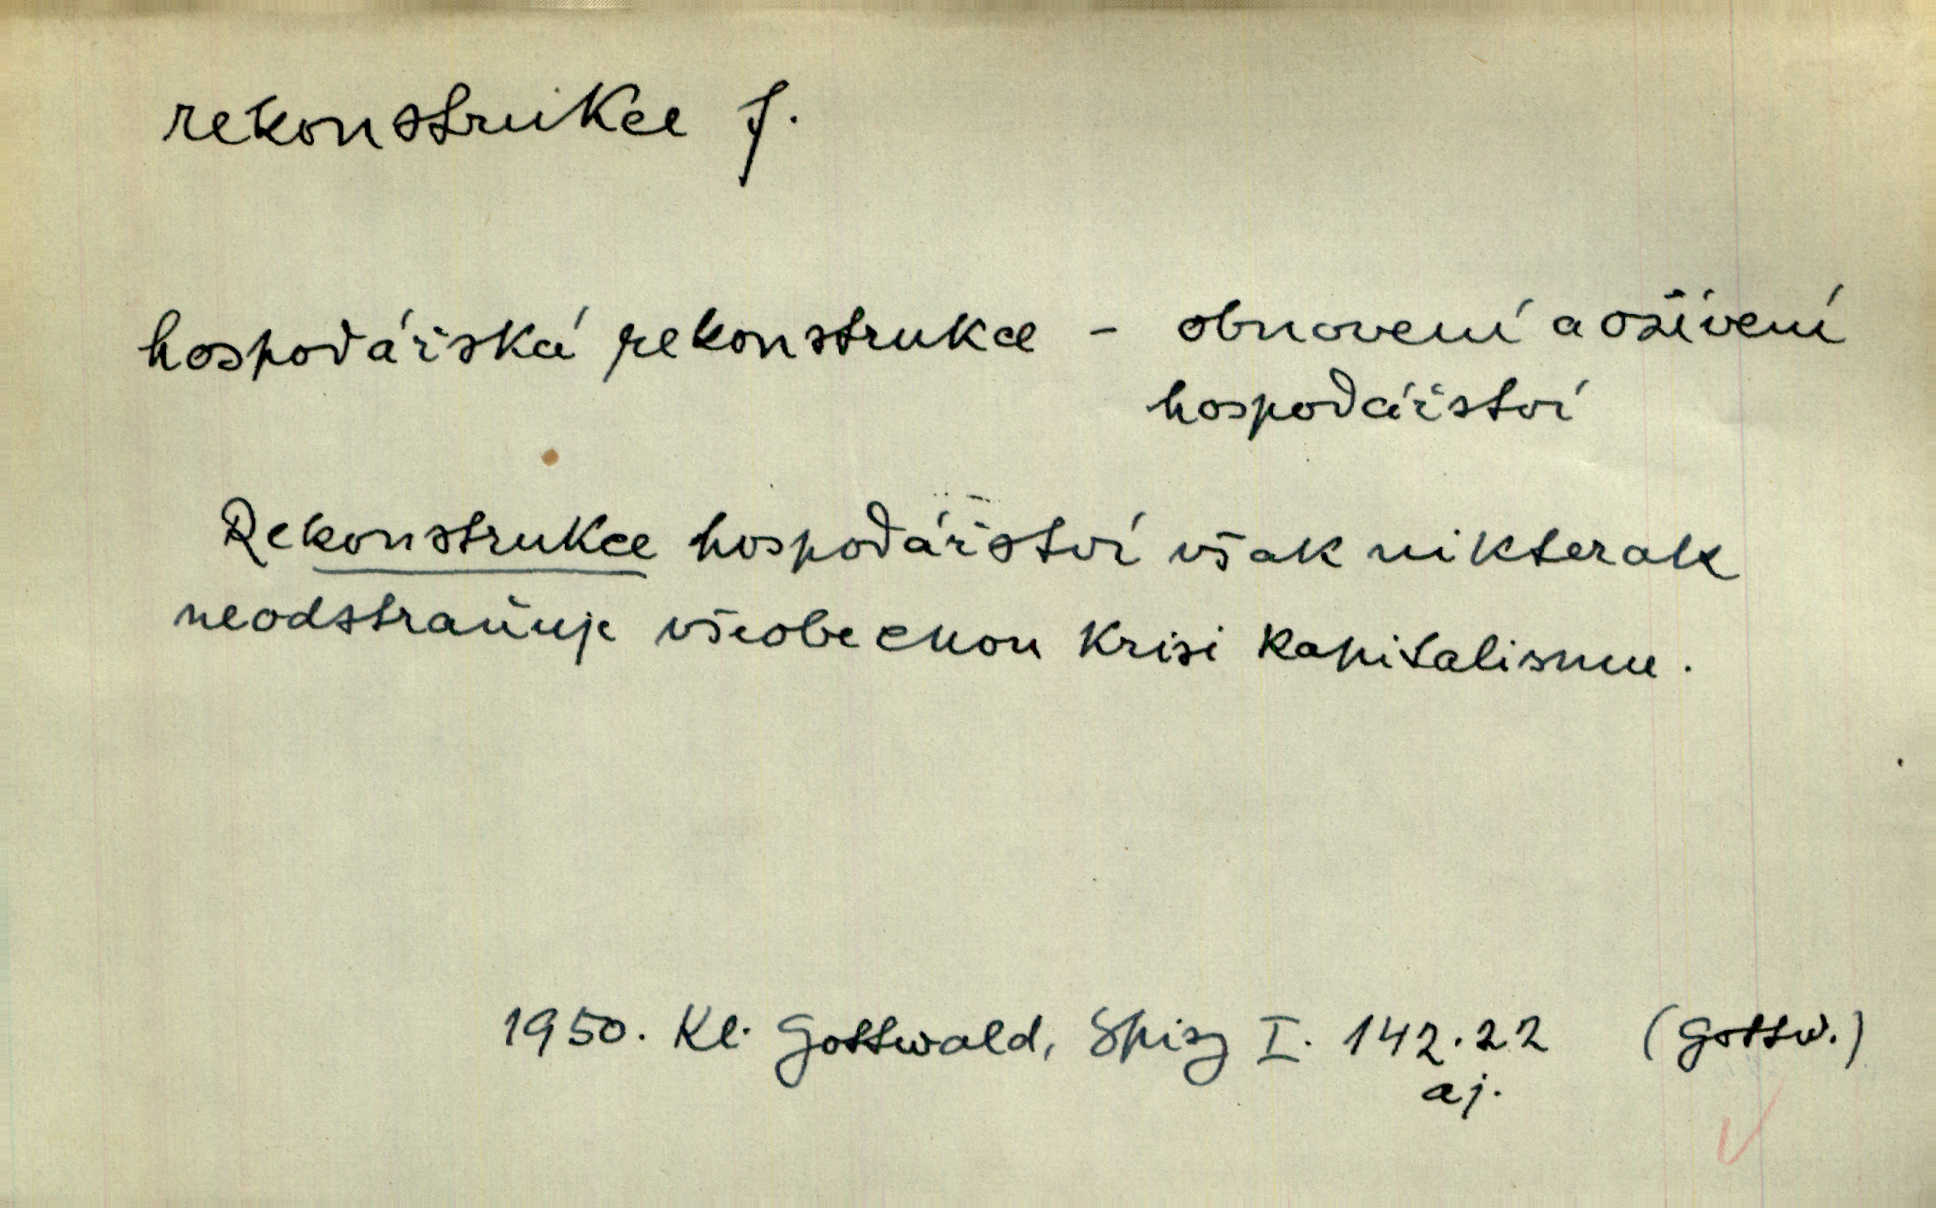 rekonstrukce f.
hospodářská rekonstrukce - obnovení a oživení
hospodářství
Rekonstrukce hospodářství však nikterak
neodstraňuje všeobecnou krisi kapitalismu.
1950. Kl. Gottwald, Spisy I. 142.22 (Gottw.)
aj.